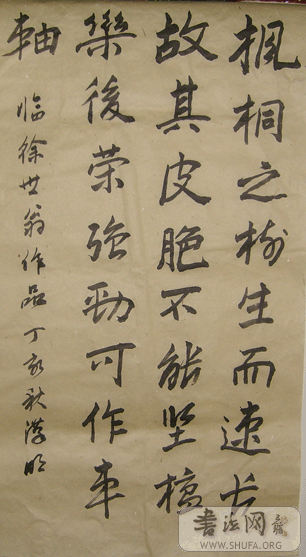 枫桐之树生而速长
故其皮脆不能坚檀
欒後荣强勁可作車
軸
临徐世翁作品丁亥秋洪明
书法网
WWW.SHUFA.ORG